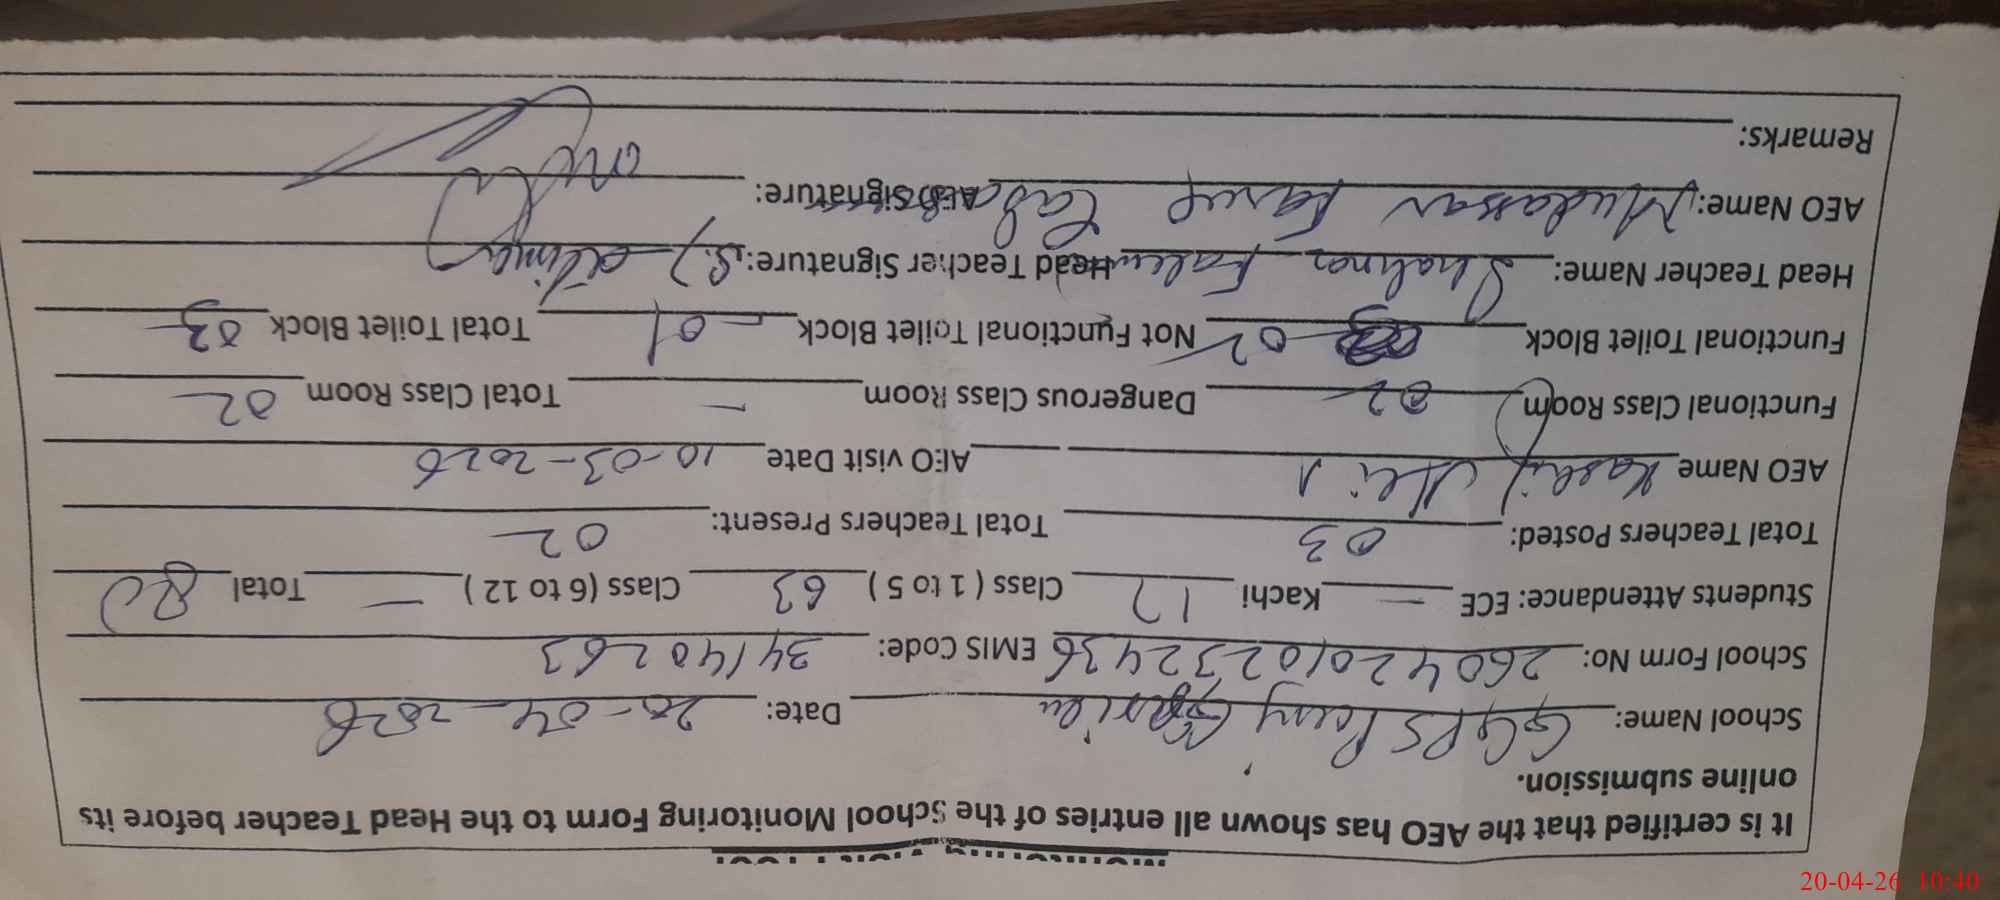 Monitoring Visit Proof
It is certified that the AEO has shown all entries of the School Monitoring Form to the Head Teacher before its
online submission.
School Name: GGPS Date: 20-04-2026
School Form No: 260420102322436 EMIS Code: 34140263
Students Attendance: ECE — Kachi 17 Class ( 1 to 5 ) 63 Class (6 to 12 ) — Total 80
Total Teachers Posted: 03 Total Teachers Present: 02
AEO Name Kashif Ali AEO visit Date 10-03-2026
Functional Class Room 02 Dangerous Class Room — Total Class Room 02
Functional Toilet Block 02 Not Functional Toilet Block 01 Total Toilet Block 03
Head Teacher Name: Shahnaz Head Teacher Signature:
AEO Name: Mudassar AEO Signature:
Remarks:
20-04-26 10:40